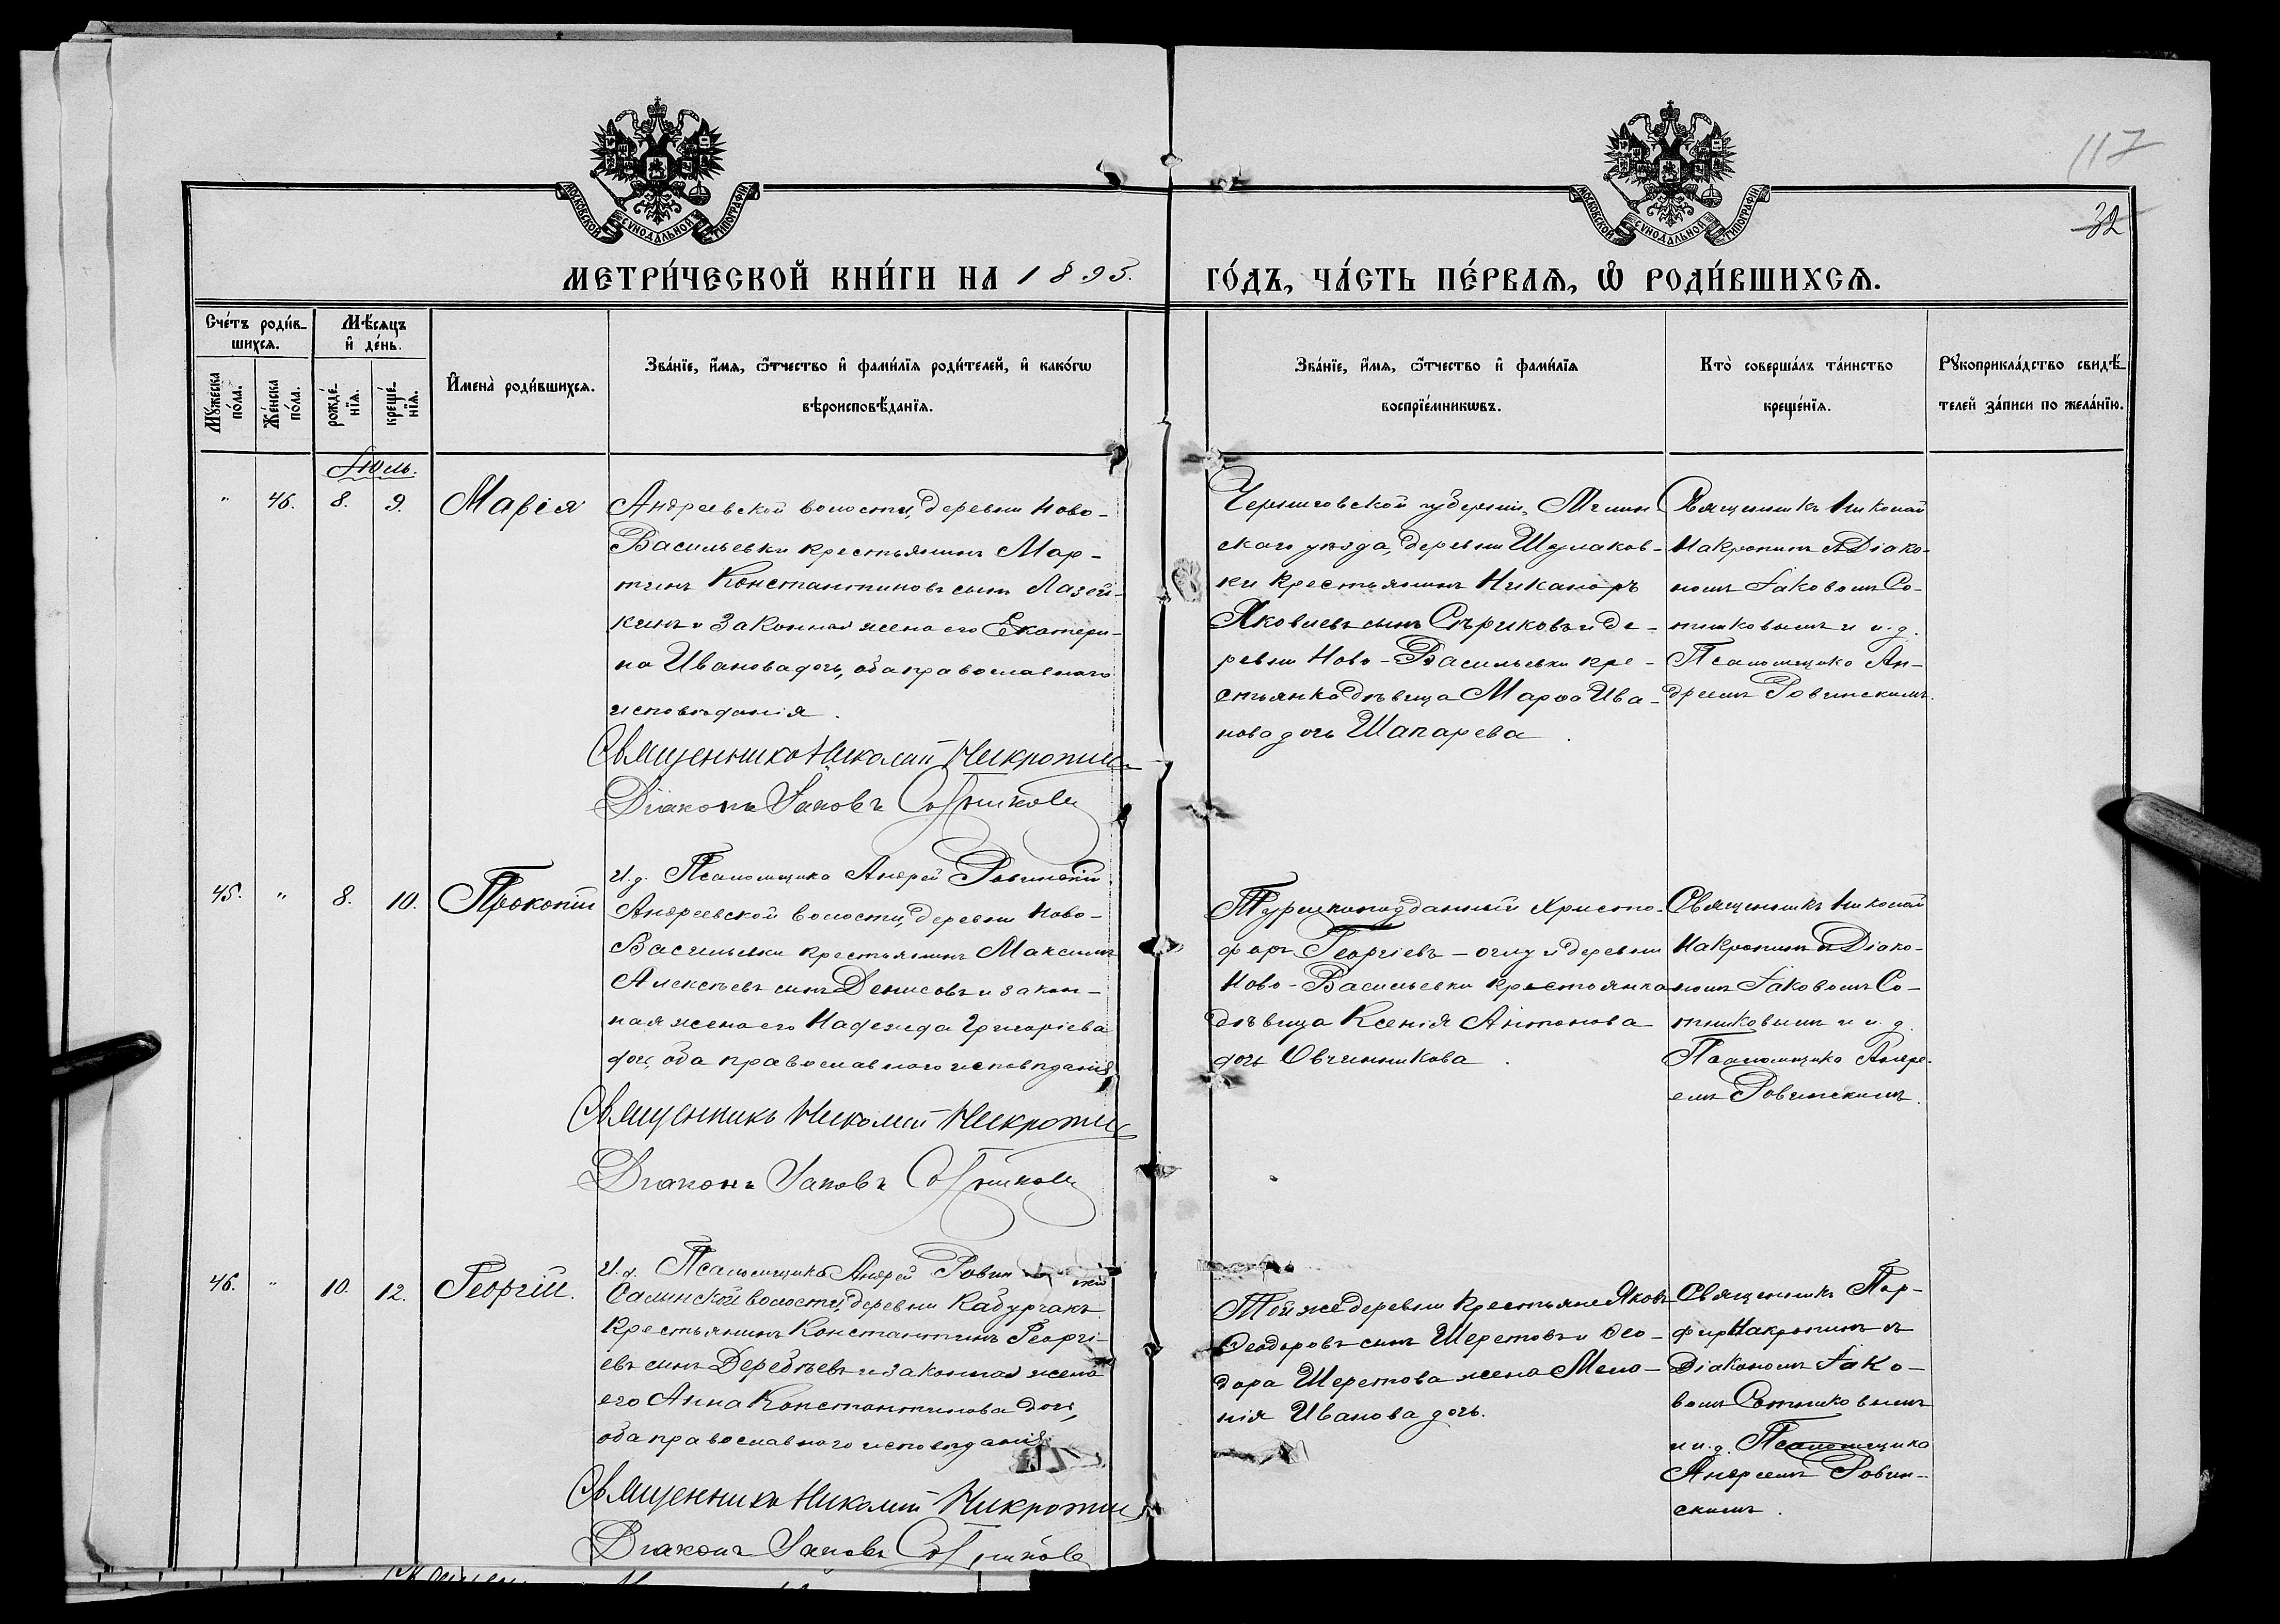 117
32
МОСКОВСКОЙ СУНОДАЛЬНОЙ ТИПОГРАФІИ
МОСКОВСКОЙ СУНОДАЛЬНОЙ ТИПОГРАФІИ
МЕТРИ́ЧЕСКОЙ КНИ́ГИ НА 1895.
ГО́ДЪ, ЧА́СТЬ ПЕ́РВАЯ, Ѡ҆ РОДИ́ВШИХСЯ.
Сче́тъ роди́в-
шихся.
Мѣ́сяцъ
и҆ де́нь.
Мꙋ́жеска
по́ла.
Же́нска
по́ла.
рожде́-
нїя.
креще́-
нїя.
И҆мена̀ роди́вшихся.
Зва́нїе, и҆́мя, ѻ҆́тчество и҆ фами́лїя роди́телей, и҆ како́гѡ
вѣроисповѣ́данїя.
Зва́нїе, и҆́мя, ѻ҆́тчество и҆ фами́лїя
воспрїе́мникѡвъ.
Кто̀ соверша́лъ та́инство
креще́нїя.
Рꙋкоприкла́дство свидѣ́-
телей за́писи по жела́нїю.
Іюль.
" 46. 8. 9. Марія
Андреевской волости, деревни Ново-
Васильевки крестьянинъ Мар-
тинъ Константиновъ сынъ Лазей-
кинъ и законная жена его Екатери-
на Иванова дочь, оба православнаго
исповѣданія.
Священникъ Николай Накропинъ
Діаконъ Іаковъ Сотниковъ
И.д. Псаломщика Андрей Ровинскій
Черниговской губерніи, Мглин-
скаго уѣзда, деревни
ки крестьянинъ Никаноръ
Яковлевъ сынъ Сѣриковъ и де-
ревни Ново-Васильевки кре-
стьянка дѣвица Марѳа Ива-
нова дочь Шапарева.
Священникъ Николай
Накропинъ съ Діако-
номъ Іаковомъ Со-
тниковымъ и и.д.
Псаломщика Ан-
дреемъ Ровинскимъ.
45. " 8. 10. Прокопій
Андреевской волости, деревни Ново-
Васильевки крестьянинъ Максимъ
Алексѣевъ сынъ Денисовъ и закон-
ная жена его Надежда Григоріева
дочь, оба православнаго исповѣданія
Священникъ Николай Накропинъ
Діаконъ Іаковъ Сотниковъ
И.д. Псаломщика Андрей Ровинскій
Турецкоподданный Христо-
форъ Георгіевъ-оглу и деревни
Ново-Васильевки крестьянка
дѣвица Ксенія Антонова
дочь Овчинникова.
Священникъ Николай
Накропинъ съ Діако-
номъ Іаковомъ Со-
тниковымъ и и.д.
Псаломщика Андре-
емъ Ровинскимъ.
46. " 10. 12. Георгій.
Салынской волости, деревни Кабурчакъ
крестьянинъ Константинъ Георгі-
евъ сынъ Деребѣевъ и законная жена
его Анна Константинова дочь,
оба православнаго исповѣданія.
Священникъ Николай Накропинъ
Діаконъ Іаковъ Сотниковъ
Той же деревни крестьяне Яковъ
Ѳеодоровъ сынъ Шеретовъ и Ѳео-
дора Шеретова жена Мела-
нія Иванова дочь.
Священникъ Пор-
фирій Накропинъ съ
Діакономъ Іако-
вомъ Сотниковымъ
и и.д. Псаломщика
Андреемъ Ровин-
скимъ.